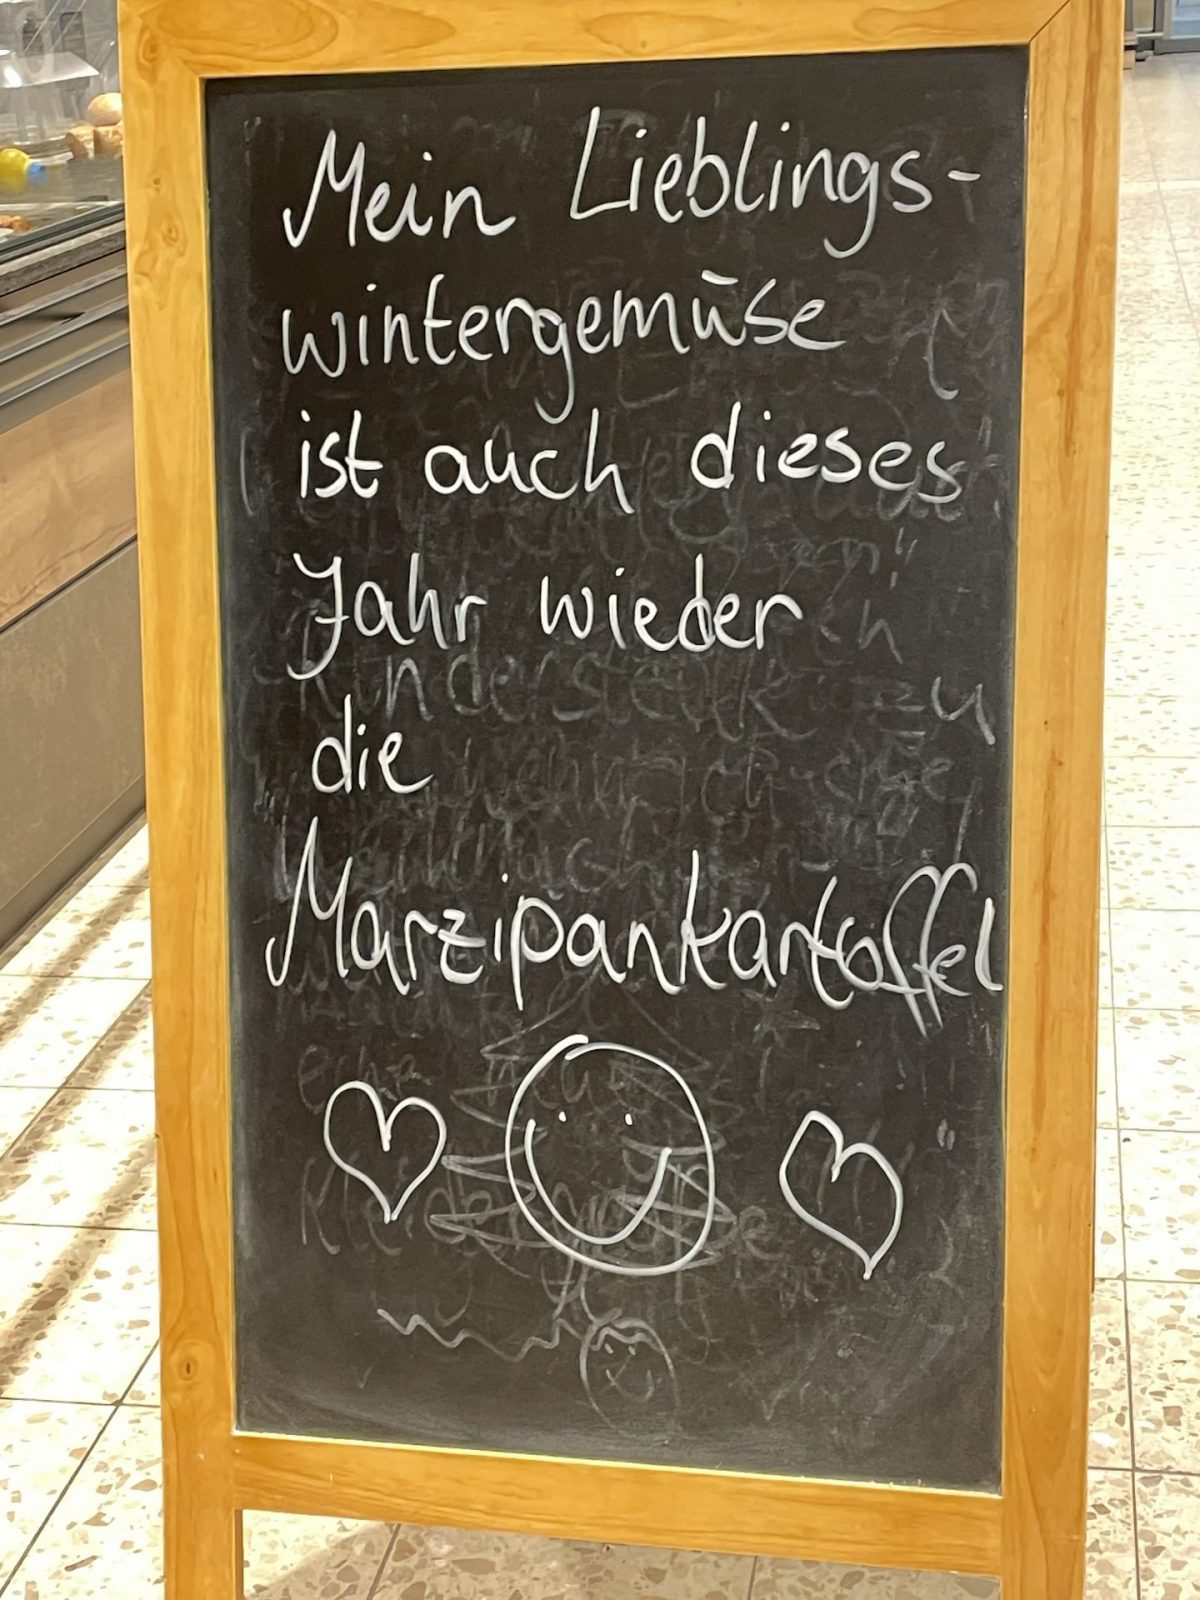 Mein Lieblings-
wintergemüse
ist auch dieses
Jahr wieder
die
Marzipankartoffel